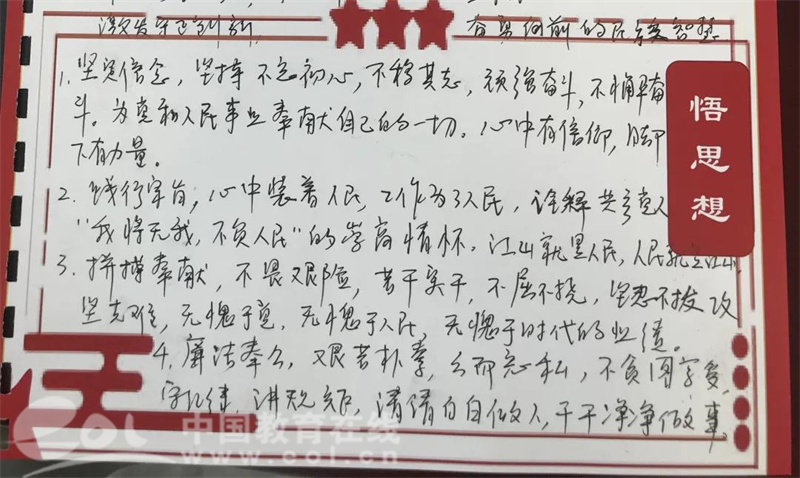 激发
奋勇向前的民族智慧
1. 坚定信念，坚持不忘初心，不移其志，顽强奋斗，不懈奋
斗。为党和人民事业奉献自己的一切。心中有信仰，脚
下有力量。
2. 践行宗旨，心中装着人民，工作为了人民，诠释共产党人
“我将无我，不负人民”的崇高情怀。江山就是人民，人民就是江山。
3. 拼搏奉献，不畏艰险，苦干实干，不屈不挠，坚忍不拔攻
坚克难，无愧于党，无愧于人民，无愧于时代的业绩。
4. 廉洁奉公，艰苦朴素，公而忘私，不负国家
守纪律，讲规矩，清清白白做人，干干净净做事。
悟思想
eol
中国教育在线
www.eol.cn